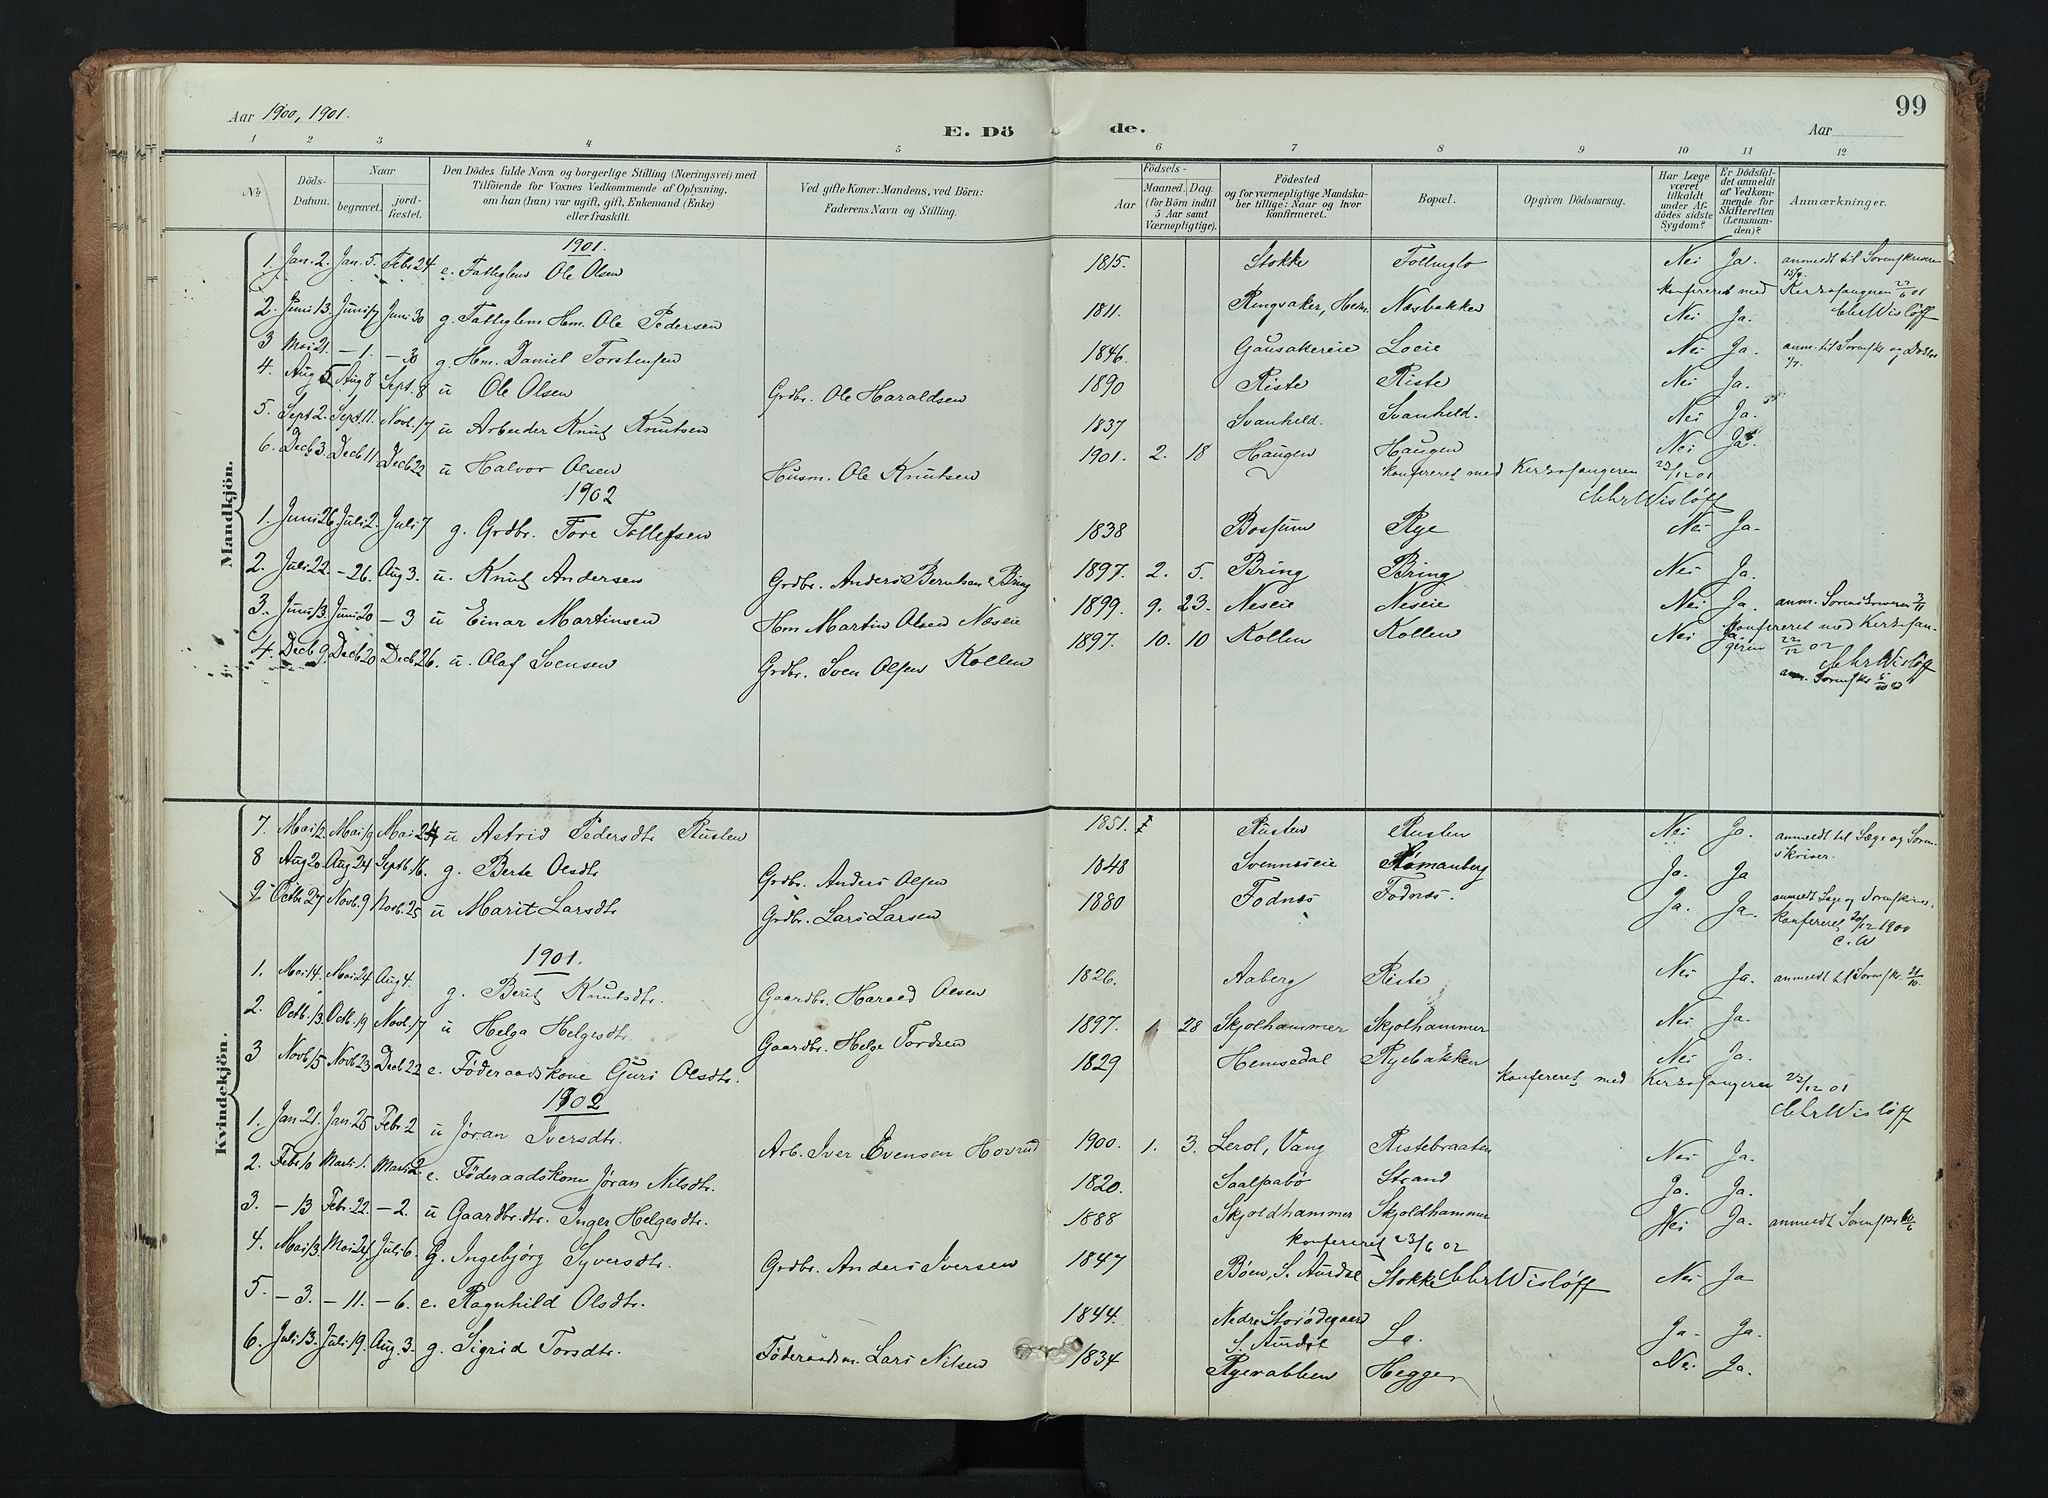 Aar 1900, 1901.
E. Dö de.
Aar
99
1 2 3 4 5 6 7 8 9 10 11 12
No.
Döds-Datum.
Naar
begravet.
jord-fæstet.
Den Dödes fulde Navn og borgerlige Stilling (Næringsvei) med
Tilföiende for Voxnes Vedkommende af Oplysning,
om han (hun) var ugift, gift, Enkemand (Enke)
eller fraskilt.
Ved gifte Koner: Mandens, ved Börn:
Faderens Navn og Stilling.
Födsels-
Aar
Maaned. Dag.
(for Börn indtil
5 Aar samt
Værnepligtige).
Födested
og for værnepligtige Mandska-
ber tillige: Naar og hvor
konfirmeret.
Bopæl.
Opgiven Dödsaarsag.
Har Læge
været
tilkaldt
under Af-
dödes sidste
Sygdom?
Er Dödsfal-
det anmeldt
af Vedkom-
mende for
Skifteretten
(Lensman-
den)?
Anmærkninger.
Mandkjön.
1901.
1. Jan. 2. Jan. 5. Febr 24 e. Fattiglem Ole Olsen 1815. Stokke Nei Ja. anmeldt til Sorenskriveren 15/9.
konfereret med Kirkesangeren 27/6 01
Chr Wisløff
2. Juni 13. Juni 17 Juni 30 g. Fattiglem Hm. Ole Pedersen 1811. Ringsaker, Hedm. Næsbakken Nei Ja.
3 Mai 21. — 1. — 30 g. Hm. Daniel Torstensen 1846. Gausakereie Loeie Nei Ja.
4. Aug 5 Aug 8 Sept. 8 u Ole Olsen Grdbr. Ole Haraldsen 1890 Riste Riste Nei Ja.
5. Sept 2. Sept. 11. Novb. 17 u Arbeider Knut Knutsen 1837 Svanheld. Svanheld. Nei Ja.
6. Decb 3. Decb 11 Decb 22 u Halvor Olsen Husm. Ole Knutsen 1901. 2. 18 Haugen Haugen Nei Ja.
konfereret med Kirkesangeren 23/12 01
Chr Wisløff
1902
1. Juni 26. Juli 2. Juli 7 g. Grdbr. Tore Tollefsen 1838 Bossum Rye Nei Ja.
2. Juli 22. — 26. Aug 3. u. Knut Andersen Grdbr. Anders Bring 1897. 2. 5. Bring Bring Nei Ja.
3. Juni 13. Juni 20 — 3 u Einar Martinsen Hm Martin Olsen Næseie 1899. 9. 23. Neseie Neseie Nei Ja. anm. Sorenskriveren 3/11
4. Decb 9. Decb 20 Decb. 26. u. Olaf Svensen Grdbr. Sven Olsen Kollen 1897. 10. 10 Kollen Kollen Nei Ja.
konfereret med Kirkesangeren 22/12 02
Chr Wisløff
Kvindekjön.
7. Mai 12. Mai 19 Mai 24 u Astrid Pedersdtr Rusten 1851. Rusten Rusten Nei Ja. anmeldt til Læge og Sorenskriver.
8 Aug 20. Aug 24 Septb. 16. g. Berte Olsdtr Grdbr. Anders Olsen 1848 Svennæseie Rømanberg Ja. Ja
9. Octbr 27 Novb. 9 Novb. 25 u Marit Larsdtr Grdbr. Lars Larsen 1880 Fodnæs Fodnæs. Ja. Ja. anmeldt Læge og Sorenskriver.
konfereret 20/12 1900
C. W
1901.
1. Mai 14. Mai 24 Aug 4. g. Berit Knutsdtr. Gaardbr. Harald Olsen 1826. Aaberg Riste Nei Ja. anmeldt til Sorenskr. 21/10.
2. Octb. 13. Octb. 19 Novb. 17 u Helga Helgesdtr. Gaardbr. Helge Tordsen 1897. 1 28 Skjolhammer Skjolhammer Nei Ja.
3 Novb 15 Novb 23 Decb 22 e. Föderaadskone Guri Olsdtr. 1829 Hemsedal Ryebakken Nei Ja.
konfereret med Kirkesangeren 22/12 01
Chr Wisløff
1902
1. Jan. 21. Jan. 25 Febr 2 u Jøran Iversdtr. Arb. Iver Evensen Hovrud 1900. 1. 3. Lerol, Vang Ristebraaten Nei Ja.
2. Febr 10 Marts 1. Marts 2. e. Föderaadskone Jøran Nilsdtr. 1820. Saalpabø Strand Ja. Ja.
3. — 13 Febr. 22. — 2. u Gaardbr.dtr. Inger Helgesdtr. 1888 Skjoldhammer Skjoldhammer Nei Ja. anmeldt Sorenskr
konfereret 23/6 02
Chr Wisløff
4. Mai 13. Mai 24 Juli 6. G. Ingebjörg Syversdtr. Grdbr. Anders Iversen 1847 Bøen, S. Aurdal Stokke Nei Ja
5. — 3. — 11. — 6. e. Ragnhild Olsdtr. 1844. Nedre Storødegaard S. Aurdal Lo. Ja. Ja.
6. Juli 13. Juli 19. Aug. 3. g. Sigrid Torsdtr. Föderaadsm. Lars Nilsen 1834 Ryerabben Hegge Nei Ja.